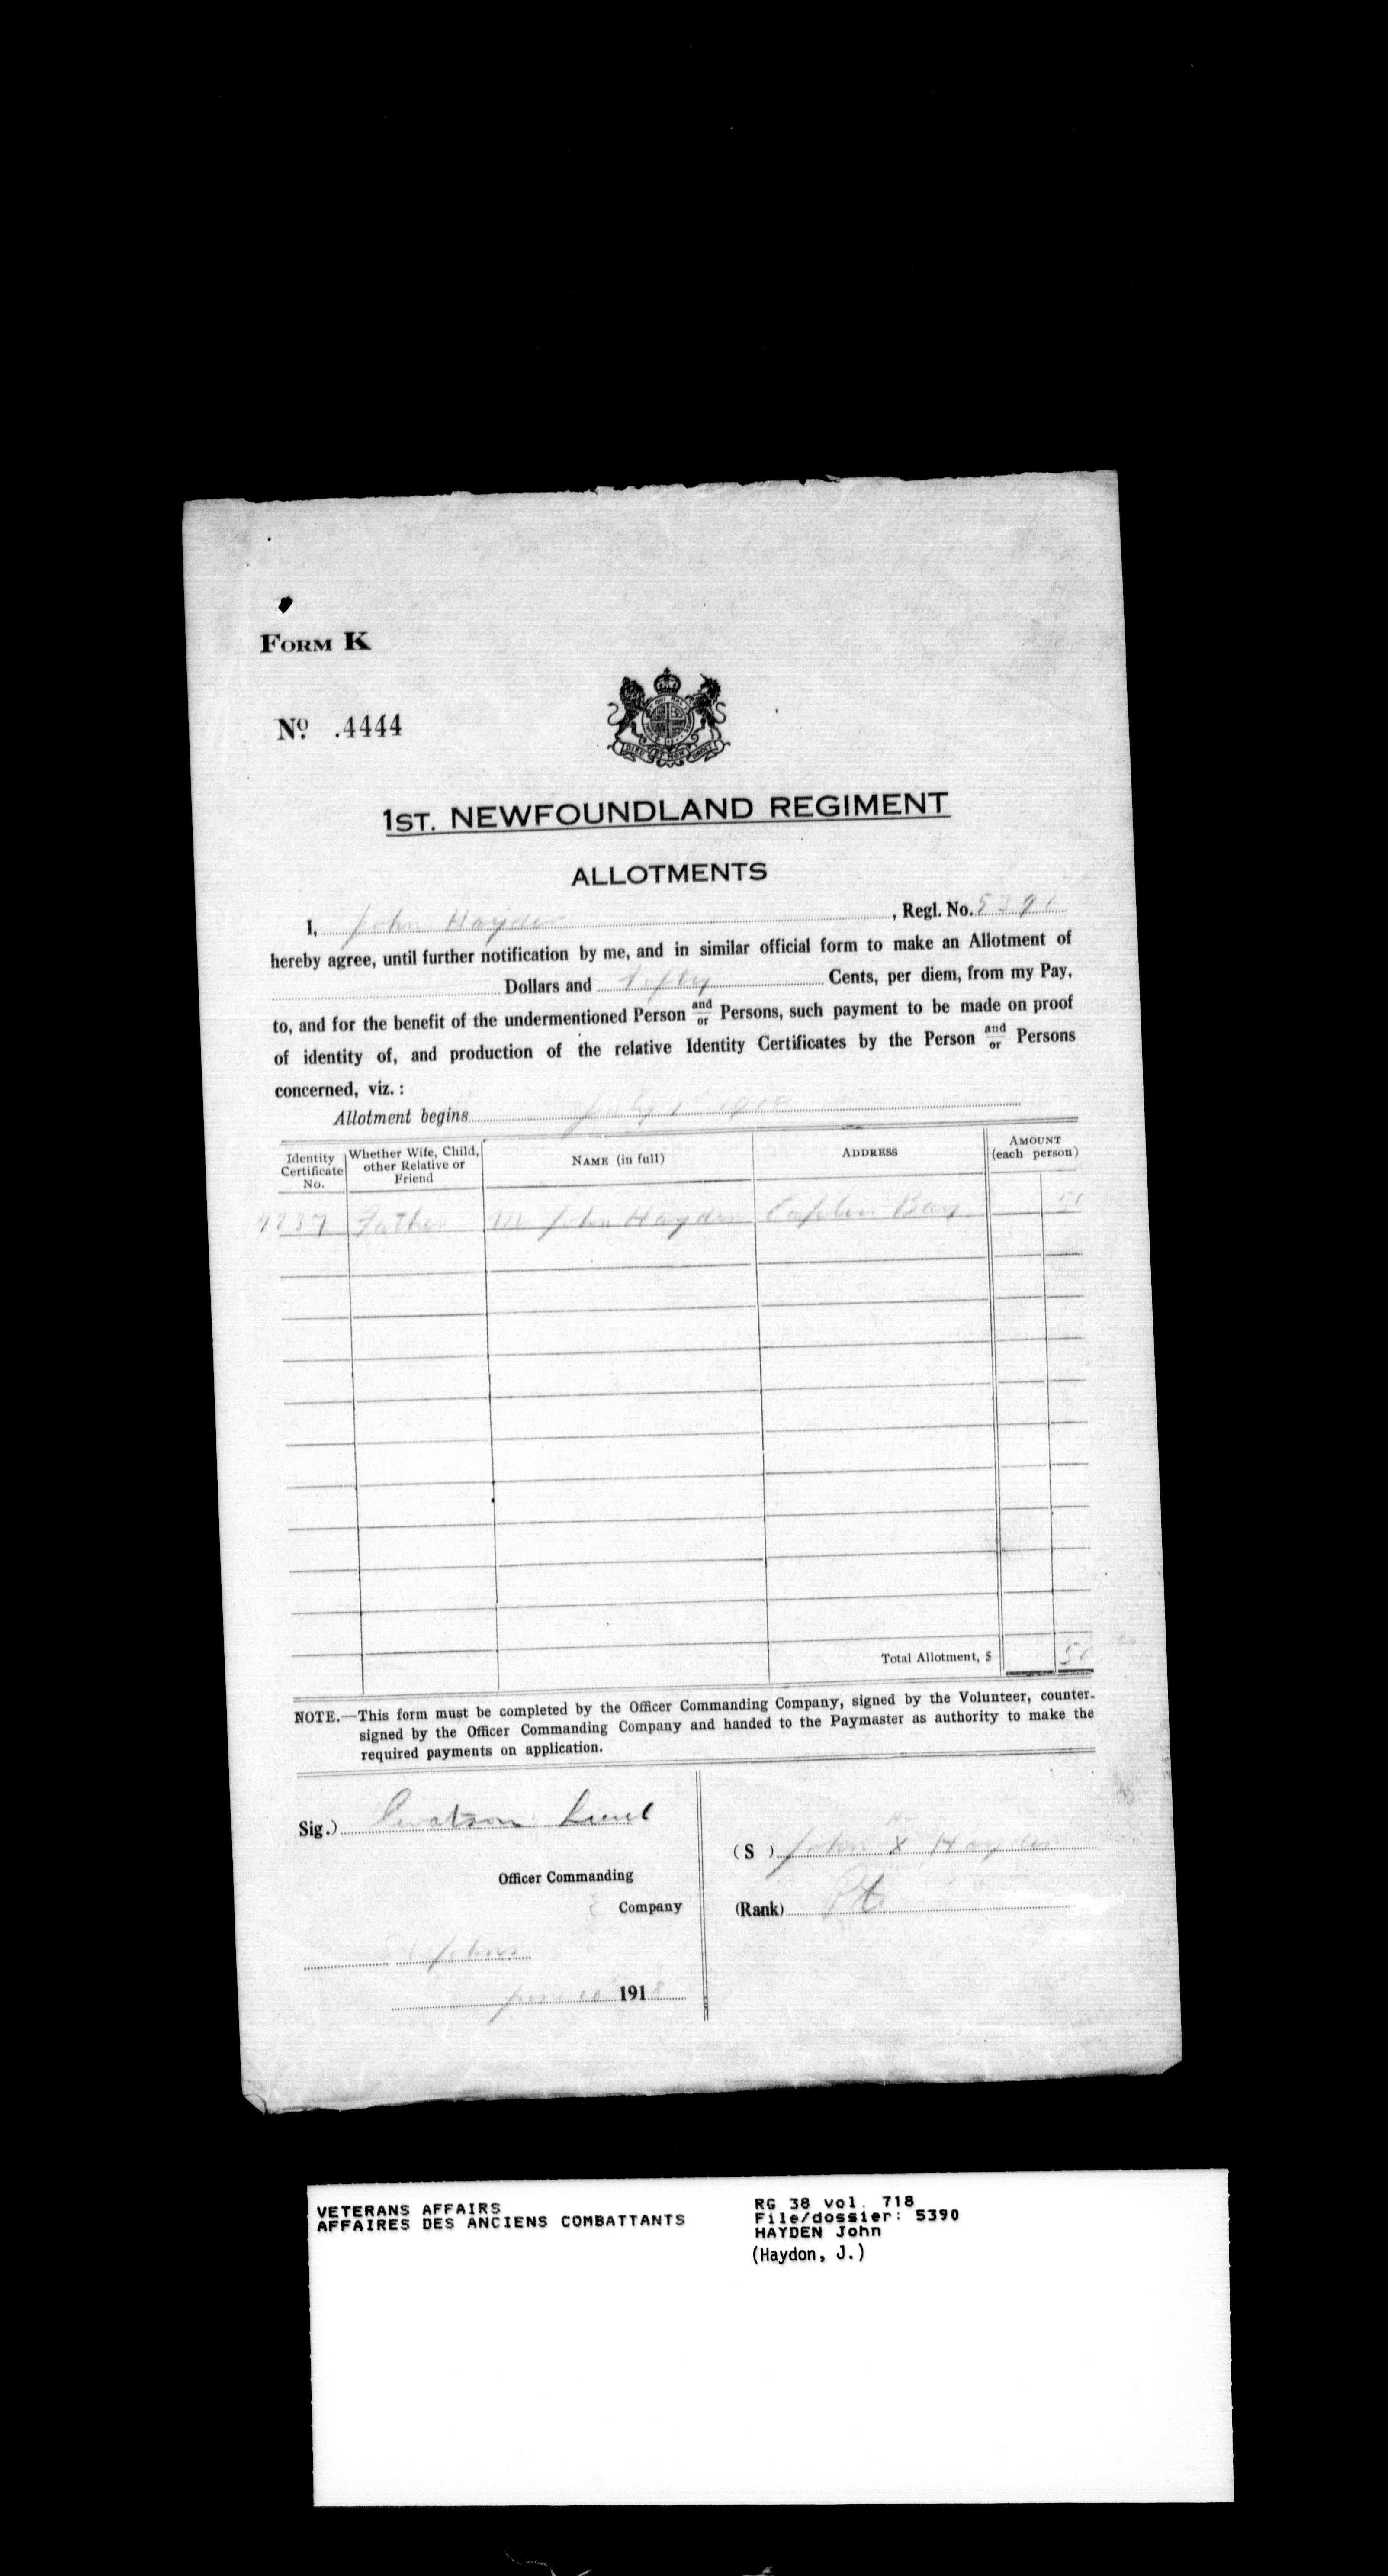 FORM K
No. .4444
1ST. NEWFOUNDLAND REGIMENT
ALLOTMENTS
I, John Hayden, Regl. No. 5390
hereby agree, until further notification by me, and in similar official form to make an Allotment of
Dollars and fifty Cents, per diem, from my Pay,
to, and for the benefit of the undermentioned Person and/or Persons, such payment to be made on proof
of identity of, and production of the relative Identity Certificates by the Person and/or Persons
concerned, viz. :
Allotment begins July 1st 1918
Identity Certificate No. Whether Wife, Child, other Relative or Friend NAME (in full) ADDRESS AMOUNT (each person)
4737 Father Mr John Hayden Caplin Bay 50
Total Allotment, $ 50
NOTE.—This form must be completed by the Officer Commanding Company, signed by the Volunteer, counter-
signed by the Officer Commanding Company and handed to the Paymaster as authority to make the
required payments on application.
Sig.)
His
(S ) John X Hayden
Officer Commanding
Company
(Rank) Pte.
St Johns
June 1918
VETERANS AFFAIRS
AFFAIRES DES ANCIENS COMBATTANTS
RG 38 vol. 718
File/dossier: 5390
HAYDEN John
(Haydon, J.)